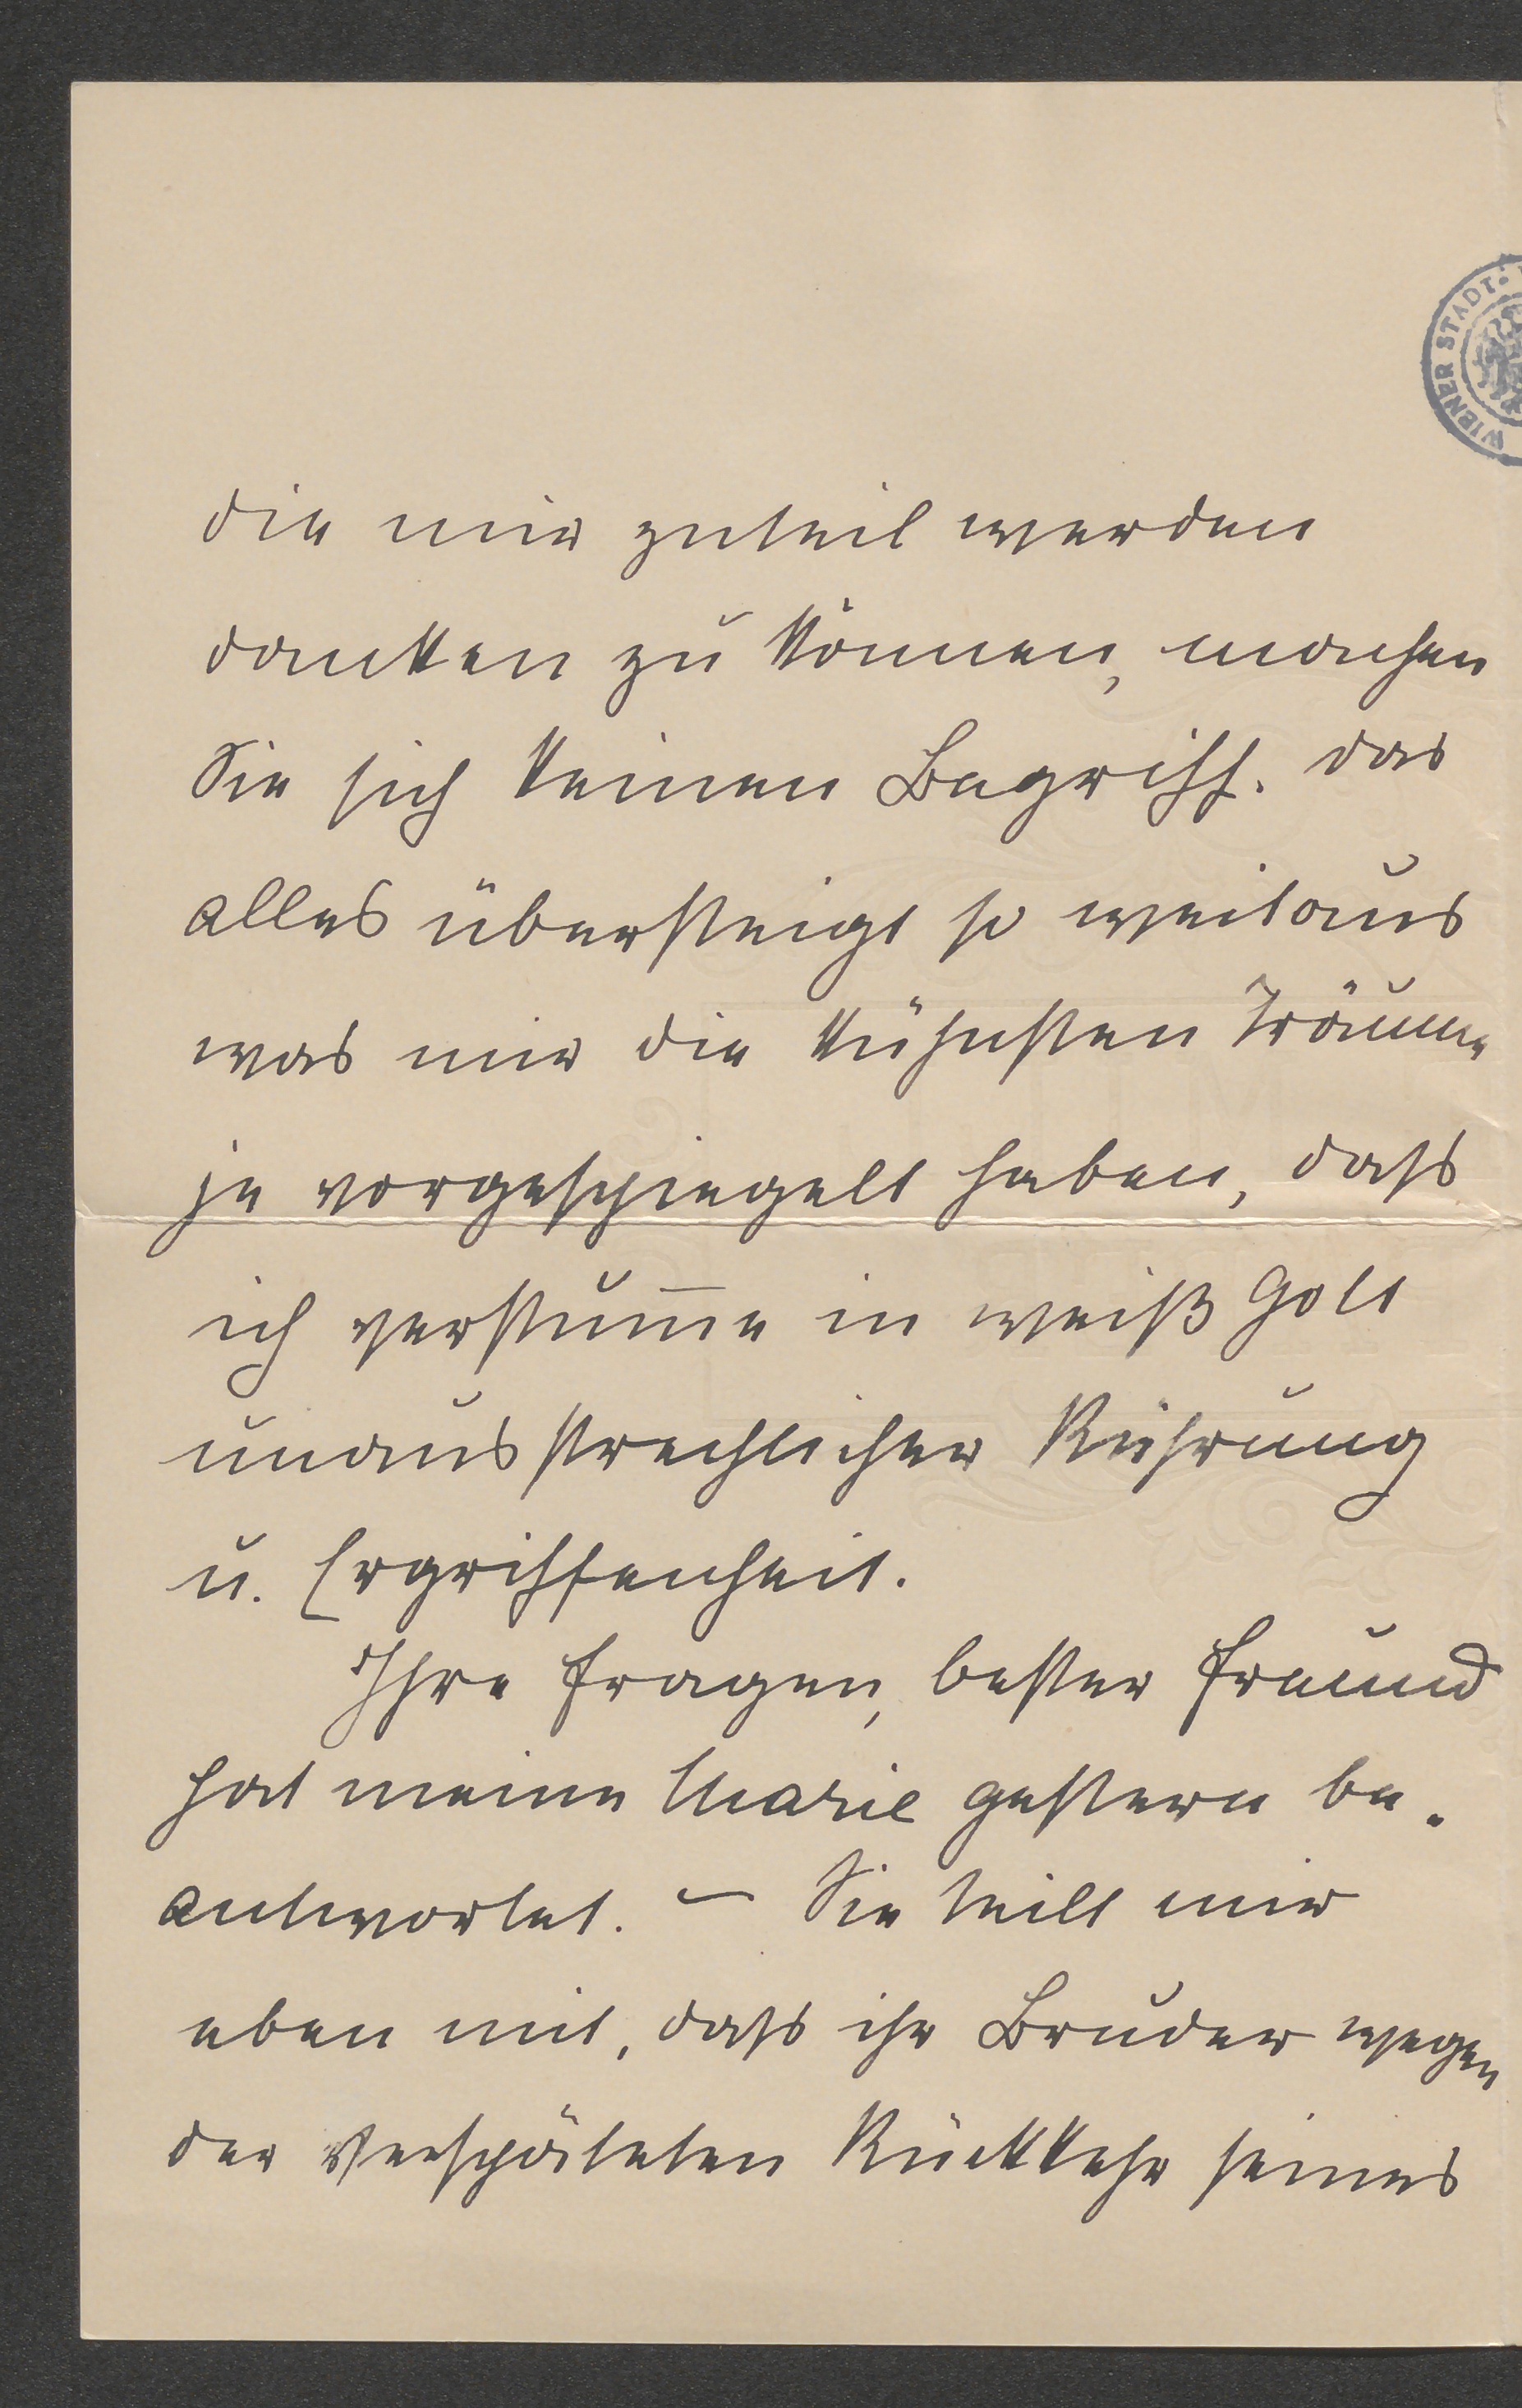 WIENER STADT:
die mir zuteil werden
danken zu können, machen
Sie sich keinen Begriff. das
alles übersteigt so weitaus
was mir die kühnsten Träume
je vorgespiegelt haben, dass
ich verstum̅e in weiß Gott
unaussprechlicher Rührung
u. Ergriffenheit.
Ihre Fragen, bester Freund
hat meine Marie gestern be-
antwortet. – Sie teilt mir
eben mit, dass ihr Bruder wegen
der verspäteten Rückkehr seines